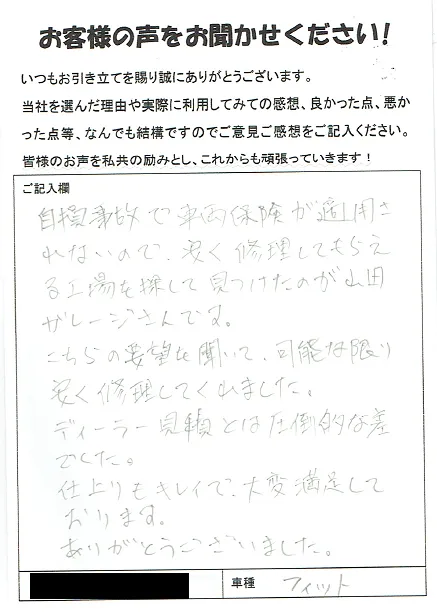 お客様の声をお聞かせください!
いつもお引き立てを賜り誠にありがとうございます。
当社を選んだ理由や実際に利用してみての感想、良かった点、悪か
った点等、なんでも結構ですのでご意見ご感想をご記入ください。
皆様のお声を私共の励みとし、これからも頑張っていきます!
ご記入欄
自損事故で車両保険が適用さ
れないので、安く修理してもらえ
る工場を探して見つけたのが山田
ガレージさんです。
こちらの要望を聞いて、可能な限り
安く修理してくれました。
ディーラー見積とは圧倒的な差
でした。
仕上りもキレイで、大変満足して
おります。
ありがとうございました。
車種 フィット